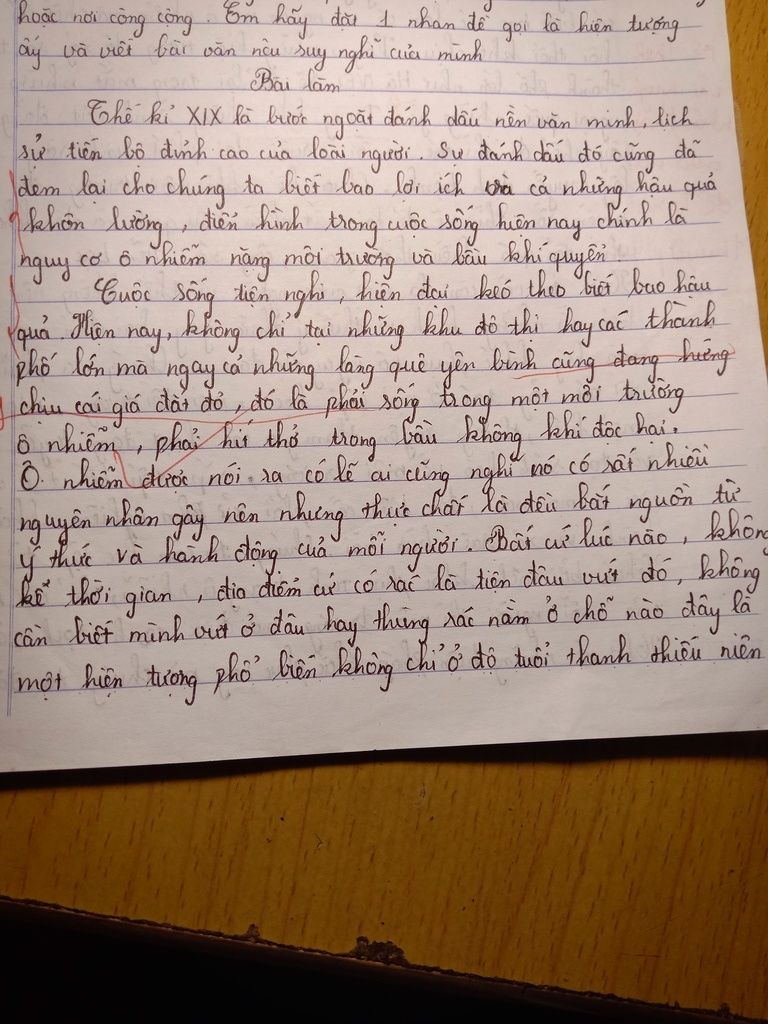 hoặc nơi công cộng. Em hãy đặt 1 nhan đề gọi là hiện tượng
ấy và viết bài văn nêu suy nghĩ của mình
Bài làm
Thế kỉ XIX là bước ngoặt đánh dấu nền văn minh, lịch
sử tiến bộ đỉnh cao của loài người. Sự đánh dấu đó cũng đã
đem lại cho chúng ta biết bao lợi ích và cả những hậu quả
khôn lường, điển hình trong cuộc sống hiện nay chính là
nguy cơ ô nhiễm nặng môi trường và bầu khí quyển.
Cuộc sống tiện nghi, hiện đại kéo theo biết bao hậu
quả. Hiện nay, không chỉ tại những khu đô thị hay các thành
phố lớn mà ngay cả những làng quê yên bình cũng đang hứng
chịu cái giá đắt đỏ, đó là phải sống trong một môi trường
ô nhiễm, phải hít thở trong bầu không khí độc hại.
Ô nhiễm được nói ra có lẽ ai cũng nghĩ nó có rất nhiều
nguyên nhân gây nên nhưng thực chất là đều bắt nguồn từ
ý thức và hành động của mỗi người. Bất cứ lúc nào, không
kể thời gian, địa điểm cứ có rác là tiện đâu vứt đó, không
cần biết mình vứt ở đâu hay thùng rác nằm ở chỗ nào đây là
một hiện tượng phổ biến không chỉ ở độ tuổi thanh thiếu niên